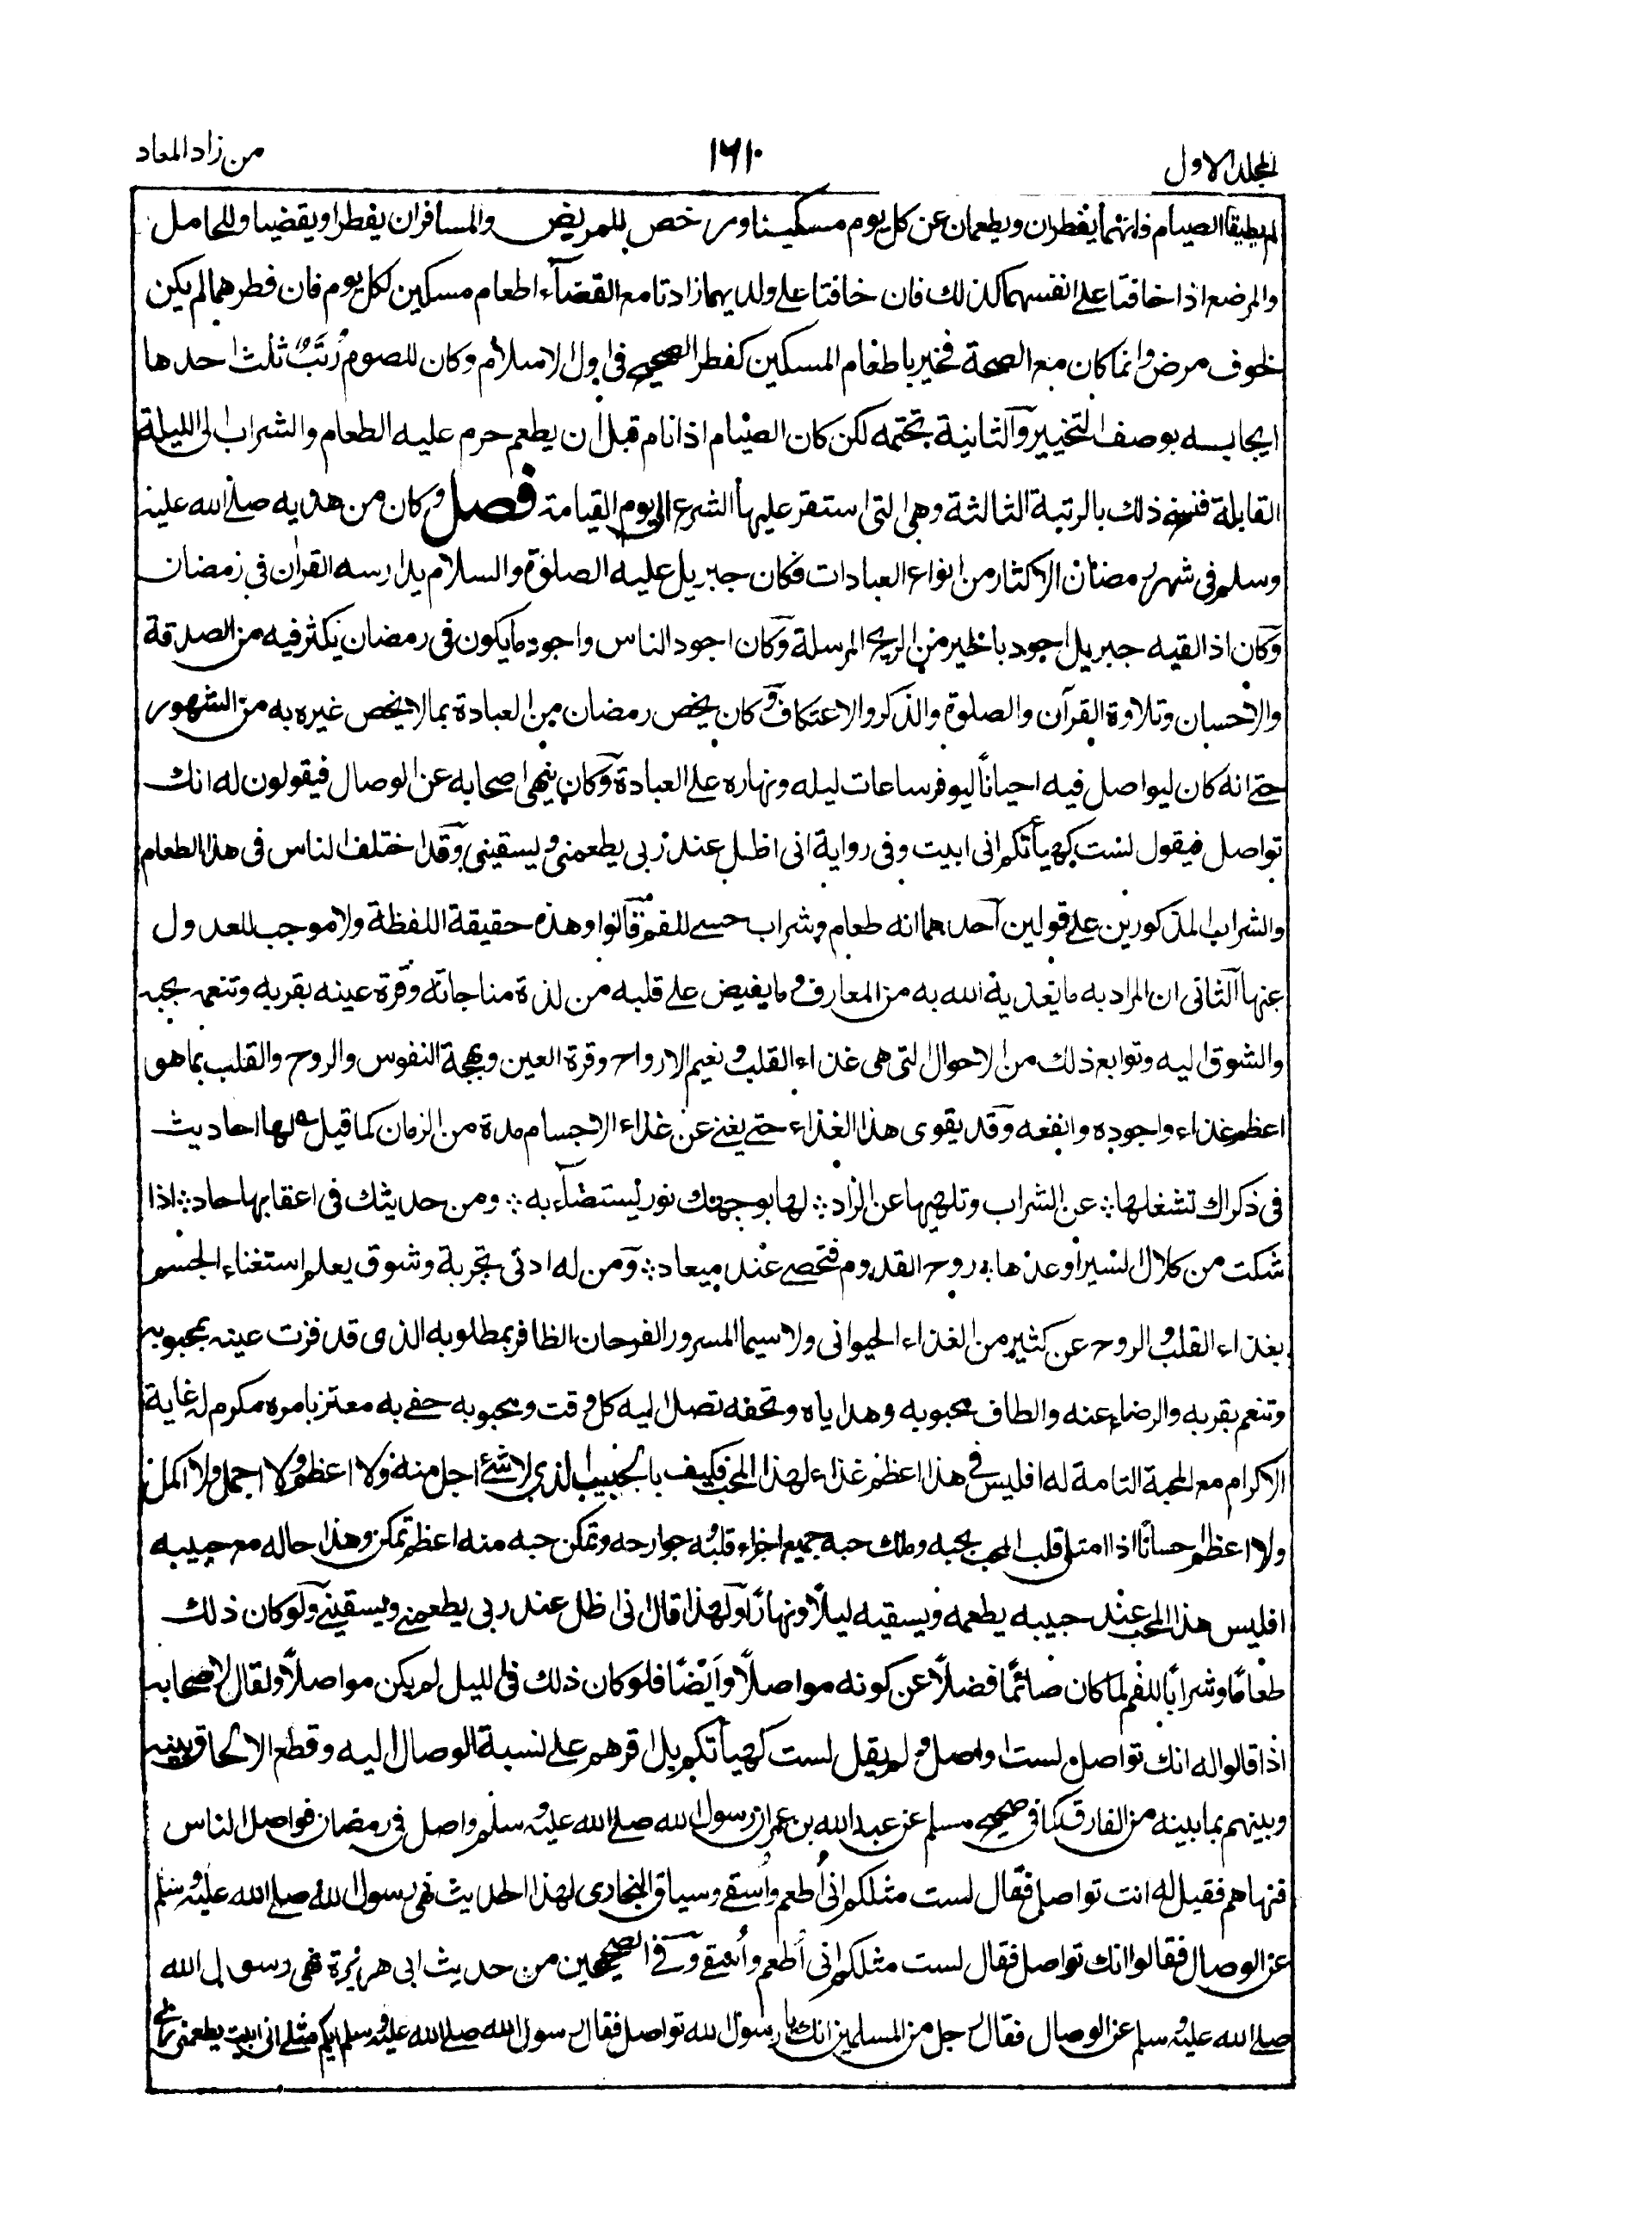 المجلد الاول
١٦٠
من زاد المعاد
لم يطيقا الصيام فانهما يفطران ويطعمان عن كل يوم مسكينا ورخص للمريض والمسافر ان يفطرا ويقضيا وللحامل
والمرضع اذا خافتا على انفسهما كذلك فان خافتا على ولديهما زادتا مع القضاء اطعام مسكين لكل يوم فان فطرهما لم يكن
لخوف مرض وانما كان مع الصحة فجبر باطعام المسكين كفطر الصحيح فى اول الاسلام وكان للصوم رُتَبٌ ثلث احدها
ايجابه بوصف التخيير والثانية تحتمه لكن كان الصيام اذا نام قبل ان يطعم حرم عليه الطعام والشراب الى الليلة
القابلة فنسخ ذلك بالرتبة الثالثة وهى التى استقر عليها الشرع الى يوم القيامة فصل وكان من هديه صلى الله عليه
وسلم فى شهر رمضان الاكثار من انواع العبادات فكان جبريل عليه الصلوة والسلام يدارسه القران فى رمضان
وكان اذا لقيه جبريل اجود بالخير من الريح المرسلة وكان اجود الناس واجود ما يكون فى رمضان يكثر فيه من الصدقة
والاحسان وتلاوة القرآن والصلوة والذكر والاعتكاف وكان يخص رمضان من العبادة بما لا يخص غيره به من الشهور
حتى انه كان ليواصل فيه احياناً ليوفر ساعات ليله ونهاره على العبادة وكان ينهى اصحابه عن الوصال فيقولون له انك
تواصل فيقول لست كهيأتكم انى ابيت وفى رواية انى اظل عند ربى يطعمنى ويسقينى وقد اختلف الناس فى هذا الطعام
والشراب المذكورين على قولين احدهما انه طعام وشراب حسى للفم قالوا وهذه حقيقة اللفظة ولا موجب للعدول
عنها الثانى ان المراد به ما يغذيه الله به من المعارف وما يفيض على قلبه من لذة مناجاته وقرة عينه بقربه وتنعمه بحبه
والشوق اليه وتوابع ذلك من الاحوال التى هى غذاء القلب ونعيم الارواح وقرة العين وبهجة النفوس والروح والقلب بما هو
اعظم غذاء واجوده وانفعه وقد يقوى هذا الغذاء حتى يغنى عن غذاء الاجسام مدة من الزمان كما قيل ؎ لها احاديث
فى ذكراك تشغلها ؞ عن الشراب وتلهيها عن الزاد ؞ لها بوجهك نور يستضاء به ؞ ومن حديثك فى اعقابها حاد ؞ اذا
شكت من كلال السير اوعدها ؞ روح القدوم فتحصى عند ميعاد ؞ ومن له ادنى تجربة وشوق يعلم استغناء الجسم
بغذاء القلب والروح عن كثير من الغذاء الحيوانى ولا سيما المسرور الفرحان الظافر بمطلوبه الذى قد قرت عينه بمحبوبه
وتنعم بقربه والرضاء عنه والطاف محبوبه وهداياه وتحفه تصل اليه كل وقت ومحبوبه حفى به معتز بامره مكرم له غاية
الاكرام مع المحبة التامة له افليس فى هذا اعظم غذاء لهذا المحب فكيف بالحبيب الذى لا شئ اجل منه ولا اعظم ولا اجمل ولا اكمل
ولا اعظم احسانًا اذا امتلى قلب المحب بحبه وملك حبه جميع اجزاء قلبه وجوارحه وتمكن حبه منه اعظم تمكن وهذا حاله مع حبيبه
افليس هذا المحب عند حبيبه يطعمه ويسقيه ليلًا ونهارًا ولهذا قال انى اظل عند ربى يطعمنى ويسقينى ولو كان ذلك
طعامًا وشرابًا للفم لما كان صائمًا فضلًا عن كونه مواصلًا وايضًا فلو كان ذلك فى الليل لم يكن مواصلًا ولقال لاصحابه
اذا قالوا له انك تواصل لست اواصل ولم يقل لست كهيأتكم بل اقرهم على نسبة الوصال اليه وقطع الالحاق بينه
وبينهم بما بينه من الفارق كما فى صحيح مسلم عن عبد الله بن عمر ان رسول الله صلى الله عليه وسلم واصل فى رمضان فواصل الناس
فنهاهم فقيل له انت تواصل فقال لست مثلكم انى اُطعم واُسقى وسياق البخارى لهذا الحديث نهى رسول الله صلى الله عليه وسلم
عن الوصال فقالوا انك تواصل فقال لست مثلكم انى اُطعم واُسقى وفى الصحيحين من حديث ابى هريرة نهى رسول الله
صلى الله عليه وسلم عن الوصال فقال رجل من المسلمين انك يا رسول الله تواصل فقال رسول الله صلى الله عليه وسلم ايكم مثلى انى ابيت يطعمنى ربى